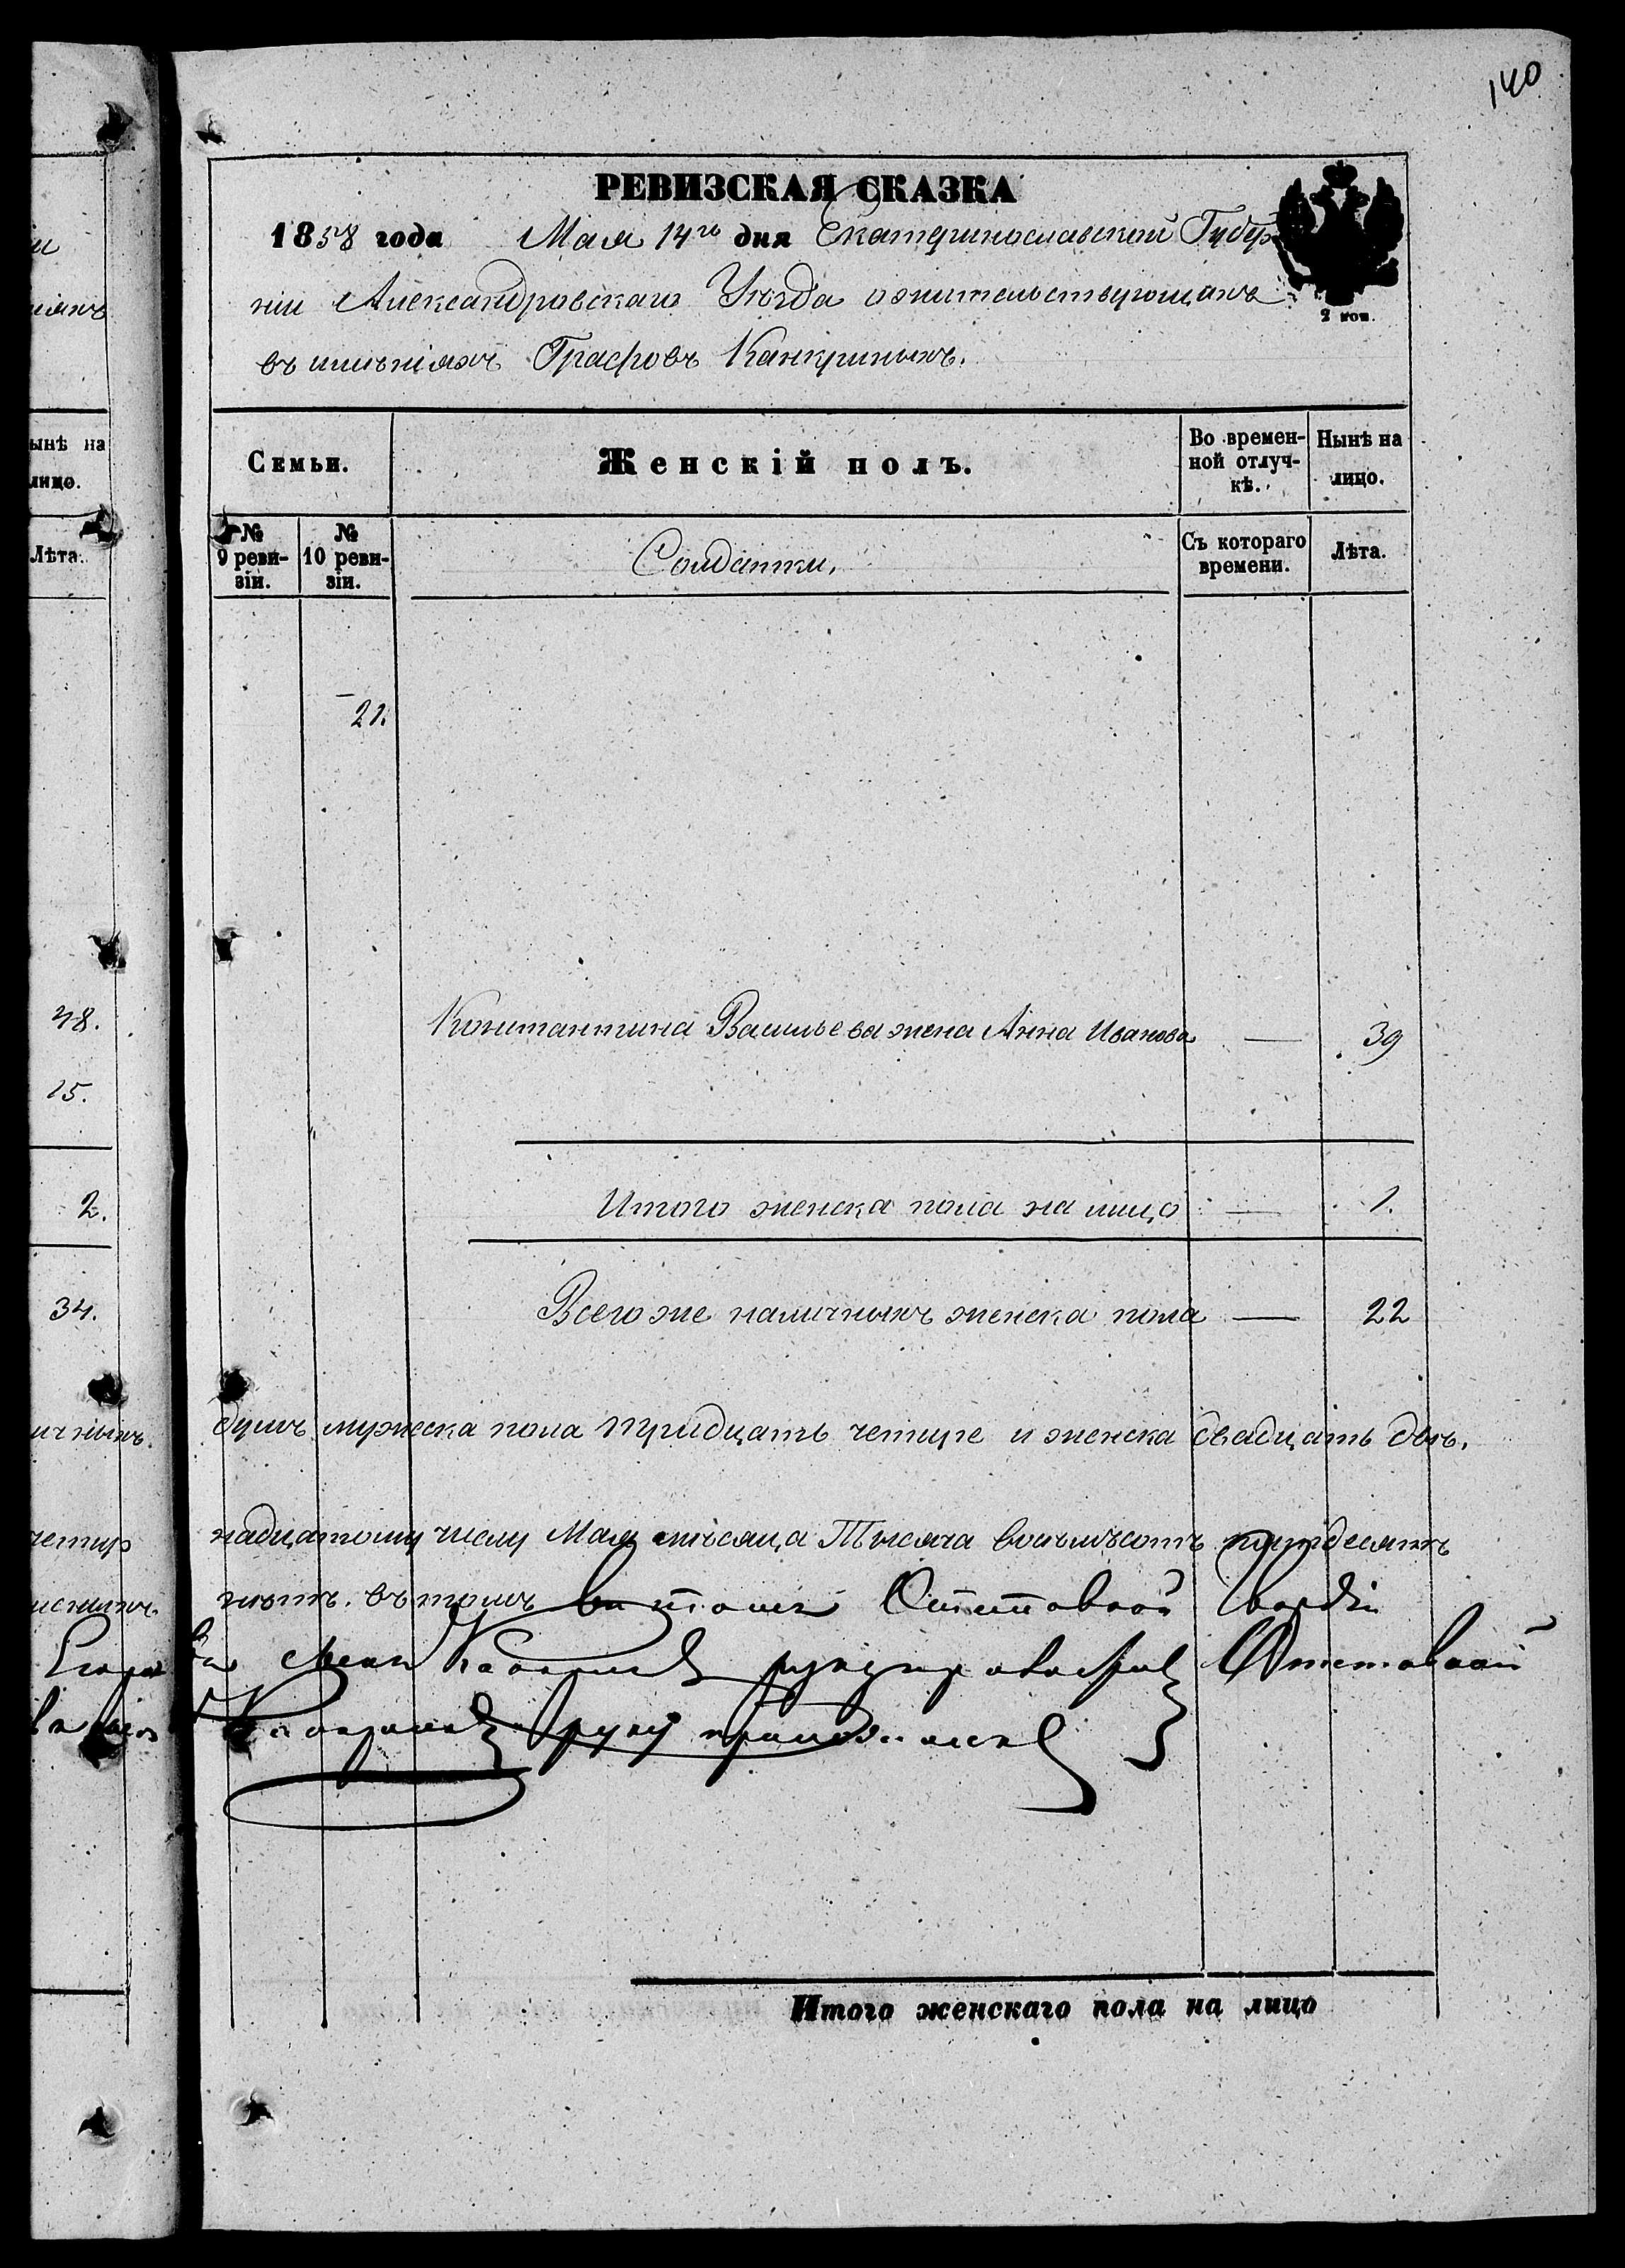 140
РЕВИЗСКАЯ СКАЗКА
1858 года Мая 14го дня Екатеринославской Губер
ніи Александровскаго Уѣзда о жительствующихъ
2 коп.
въ имѣніяхъ Графовъ Канкриныхъ.
ынѣ на
лицо.
Лѣта.
Семьи.
Женскій полъ.
Во времен-
ной отлуч-
кѣ.
Нынѣ на
лицо.
№
9 реви-
зіи.
№
10 реви-
зіи.
Солдатки.
Съ котораго
времени.
Лѣта.
21.
48.
Константина Васильева жена Анна Иванова — 39
15.
2.
Итого женска пола на лицо — 1.
34.
Всего же наличныхъ женска пола — 22
ичныхъ
душъ мужеска пола тридцать четыре и женска двадцать двѣ.
четыр
надцатому числу Мая мѣсяца Тысяча восемьсотъ пятдесятъ
въ томъ
руку приложилъ
Итого женскаго пола на лицо